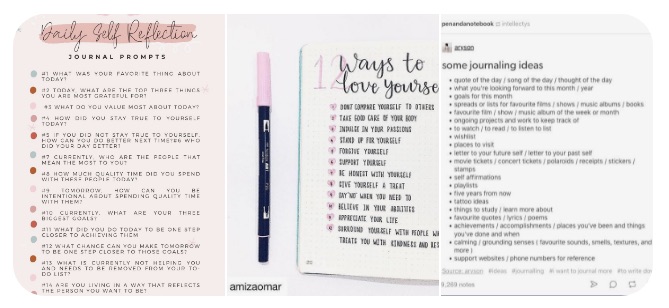 Daily Self Reflection
JOURNAL PROMPTS
#1 WHAT WAS YOUR FAVORITE THING ABOUT
TODAY?
#2 TODAY, WHAT ARE THE TOP THREE THINGS
YOU ARE MOST GRATEFUL FOR?
#3 WHAT DO YOU VALUE MOST ABOUT TODAY?
#4 HOW DID YOU STAY TRUE TO YOURSELF
TODAY?
#5 IF YOU DID NOT STAY TRUE TO YOURSELF,
HOW CAN YOU DO BETTER NEXT TIME?
DID YOUR DAY BETTER?
#7 CURRENTLY, WHO ARE THE PEOPLE THAT
MEAN THE MOST TO YOU?
#8 HOW MUCH QUALITY TIME DID YOU SPEND
WITH THESE PEOPLE TODAY?
#9 TOMORROW, HOW CAN YOU BE
INTENTIONAL ABOUT SPENDING QUALITY TIME
WITH THEM?
#10 CURRENTLY, WHAT ARE YOUR THREE
BIGGEST GOALS?
#11 WHAT DID YOU DO TODAY TO BE ONE STEP
CLOSER TO ACHIEVING THEM
#12 WHAT CHANGE CAN YOU MAKE TOMORROW
TO BE ONE STEP CLOSER TO THOSE GOALS?
#13 WHAT IS CURRENTLY NOT HELPING YOU
AND NEEDS TO BE REMOVED FROM YOUR TO-
DO LIST?
#14 ARE YOU LIVING IN A WAY THAT REFLECTS
THE PERSON YOU WANT TO BE?
12 ways to
love yourse
DON'T COMPARE YOURSELF TO OTHERS
TAKE GOOD CARE OF YOUR BODY
INDULGE IN YOUR PASSIONS
STAND UP FOR YOURSELF
FORGIVE YOURSELF
SUPPORT YOURSELF
BE HONEST WITH YOURSELF
GIVE YOURSELF A TREAT
SAY 'NO' WHEN YOU NEED TO
BELIEVE IN YOUR ABILITIES
APPRECIATE YOUR LIFE
SURROUND YOURSELF WITH PEOPLE WH
TREATS YOU WITH KINDNESS AND RES
amizaomar
penandanotebook intellectys
acyson
some journaling ideas
• quote of the day / song of the day / thought of the day
• what you're looking forward to this month / year
• goals for this month
• spreads or lists for favourite films / shows / music albums / books
• favourite film / show / music album of the week or month
• ongoing projects and work to keep track of
• to watch / to read / to listen to list
• wishlist
• places to visit
• letter to your future self / letter to your past self
• movie tickets / concert tickets / polaroids / receipts / stickers /
stamps
• self affirmations
• playlists
• five years from now
• tattoo ideas
• things to study / learn more about
• favourite quotes / lyrics / poems
• achievements / accomplishments / places you've been and things
you've done and when
• calming / grounding senses ( favourite sounds, smells, textures, and
more )
• support websites / phone numbers for reference
Source: acyson #ideas #journaling #i want to journal more #to write do